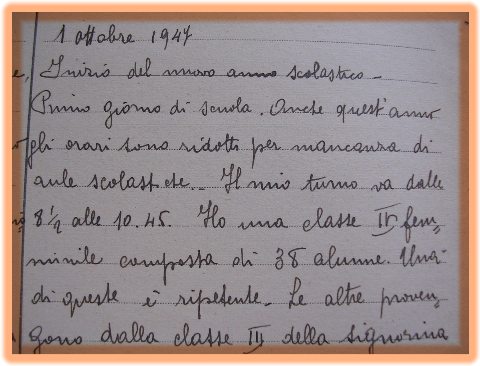 1 ottobre 1947
Inizio del nuovo anno scolastico -
Primo giorno di scuola. Anche quest'anno
gli orari sono ridotti per mancanza di
aule scolastiche.. Il mio turno va dalle
8 1/2 alle 10.45. Ho una classe IV fem=
minile composta di 38 alunne. Una
di queste è ripetente. Le altre proven=
gono dalla classe III della signorina